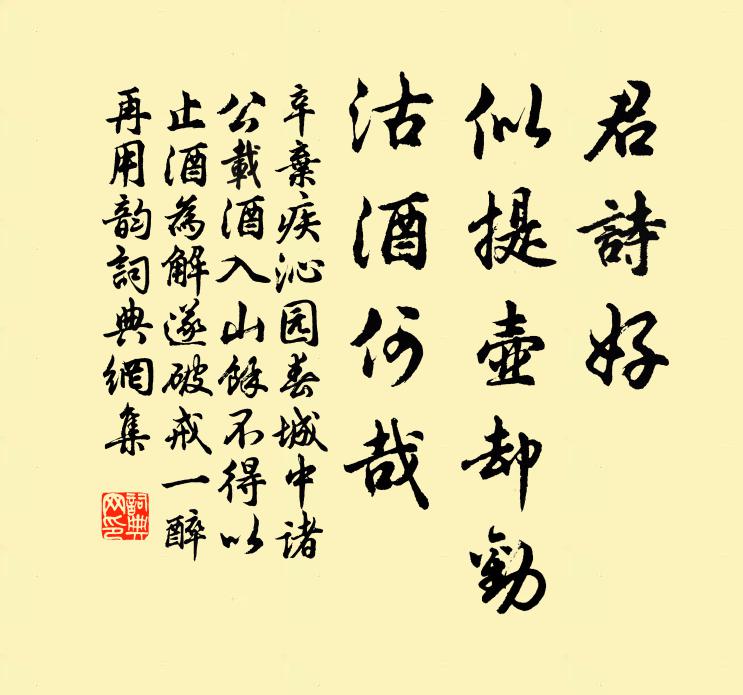 君詩好
似提壺却勸
沽酒何哉
辛棄疾沁园春城中诸
公載酒入山餘不得以
止酒為解遂破戒一醉
再用韵詞典網集
詞典网印